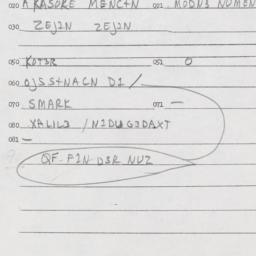 020 A KASOKE MENC+N 021 MODN3 NUMEN
030 ZEJ2N ZEJ2N
050 KOT3R 051 0
060 OJSS+NACN D1 /
070 SMARK 071 —
080 XALIL3 / N2DUG3DAXT
081 —
QF-P2N D3R NUZ